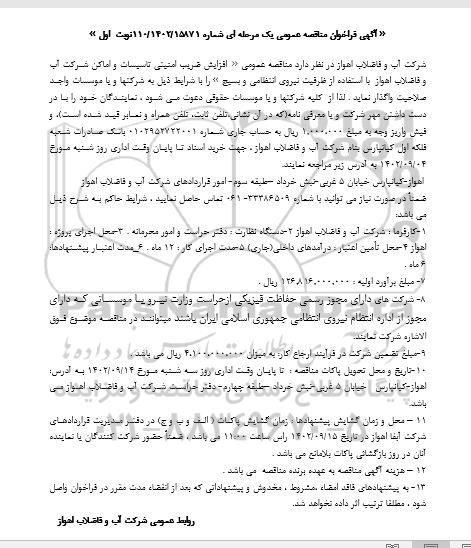 « آگهی فراخوان مناقصه عمومی یک مرحله ای شماره ۱۱۰/۱۴۰۲/۱۵۸۷۱نوبت اول »
شرکت آب و فاضلاب اهواز در نظر دارد مناقصه عمومی « افزایش ضریب امنیتی تاسیسات و اماکن شرکت آب
و فاضلاب اهواز با استفاده از ظرفیت نیروی انتظامی و بسیج » را با شرایط ذیل به شرکتها و یا موسسات واجد
صلاحیت واگذار نماید . لذا از کلیه شرکتها و یا موسسات حقوقی دعوت می شود ، نمایندگان خود را با در
دست داشتن مهر شرکت و یا معرفی نامه(که در آن نشانی،تلفن ثابت، تلفن همراه و نمابر قید شده است)، و
فیش واریز وجه به مبلغ ۱.۰۰۰.۰۰۰ ریال به حساب جاری شماره ۰۱۰۲۹۵۲۷۲۲۰۰۱ بانک صادرات شعبه
فلکه اول کیانپارس بنام شرکت آب و فاضلاب اهواز ، جهت خرید اسناد تا پایان وقت اداری روز شنبه مورخ
۱۴۰۲/۰۹/۰۴ به آدرس زیر مراجعه نمایند.
اهواز-کیانپارس خیابان ۵ غربی-نبش خرداد –طبقه سوم- امور قراردادهای شرکت آب و فاضلاب اهواز
ضمناً در صورت نیاز می توانید با شماره ۳۳۳۸۶۵۰۹-۰۶۱ تماس حاصل نمایید ، شرایط حاکم به شرح ذیل
می باشد:
۱-کارفرما : شرکت آب و فاضلاب اهواز ۲-دستگاه نظارت : دفتر حراست و امور محرمانه . ۳-محل اجرای پروژه :
اهواز ۴-محل تأمین اعتبار : درآمدهای داخلی(جاری) ۵-مدت اجرای کار : ۱۲ ماه . ۶_مدت اعتبار پیشنهادها:
۶ ماه .
۷- مبلغ برآورد اولیه : ۱۲۶.۸۱۶.۰۰۰.۰۰۰ ریال .
۸- شرکت های دارای مجوز رسمی حفاظت فیزیکی ازحراست وزارت نیرو یا موسساتی که دارای
مجوز از اداره انتظام نیروی انتظامی جمهوری اسلامی ایران باشند میتوانند در مناقصه موضوع فوق
الاشاره شرکت نمایند.
۹-مبلغ تضمین شرکت در فرآیند ارجاع کار، به میزان ۴.۱۰۰.۰۰۰.۰۰۰ ریال می باشد .
۱۰-تاریخ و محل تحویل پاکات مناقصه : تا پایان وقت اداری روز سه شنبه مورخ ۱۴۰۲/۰۹/۱۴ به آدرس:
اهواز-کیانپارس خیابان ۵ غربی-نبش خرداد –طبقه چهارم- دفتر حراست شرکت آب و فاضلاب اهواز می
باشد.
۱۱ – محل و زمان گشایش پیشنهادها : زمان گشایش پاکات ( الف و ب و ج) در دفتر مدیریت قراردادهای
شرکت آبفا اهواز در تاریخ ۱۴۰۲/۰۹/۱۵ راس ساعت ۱۱:۰۰ می باشد ، ضمناً حضور شرکت کنندگان یا نماینده
آنان در روز بازگشائی پاکات بلامانع می باشد .
۱۲ – هزینه آگهی مناقصه به عهده برنده مناقصه می باشد .
۱۳- به پیشنهادهای فاقد امضاء ،مشروط ، مخدوش و پیشنهاداتی که بعد از انقضاء مدت مقرر در فراخوان واصل
شود ، مطلقا ترتیب اثر داده نخواهد شد.
روابط عمومی شرکت آب و فاضلاب اهواز